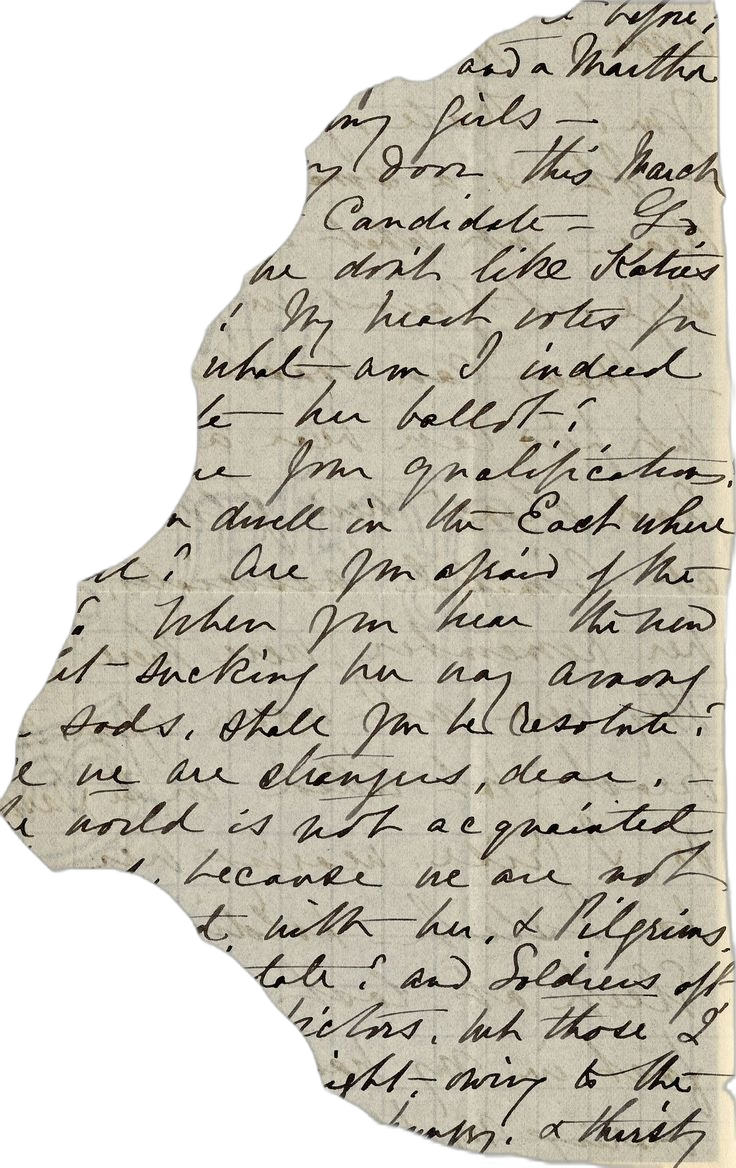 before,
and a Martha
my girls —
my door this March
Candidate — Go
we don't like Katie's
? My heart votes for
what am I indeed
her ballot?
are your qualifications,
dwell in the East where
? Are you afraid of the
? When you hear the new
sucking her way among
sods, shall you be resolute?
we are strangers, dear, —
world is not acquainted
because we are not
with her, & Pilgrims,
? and Soldiers oft
victors, but those I
owing to the
hungry, & thirsty